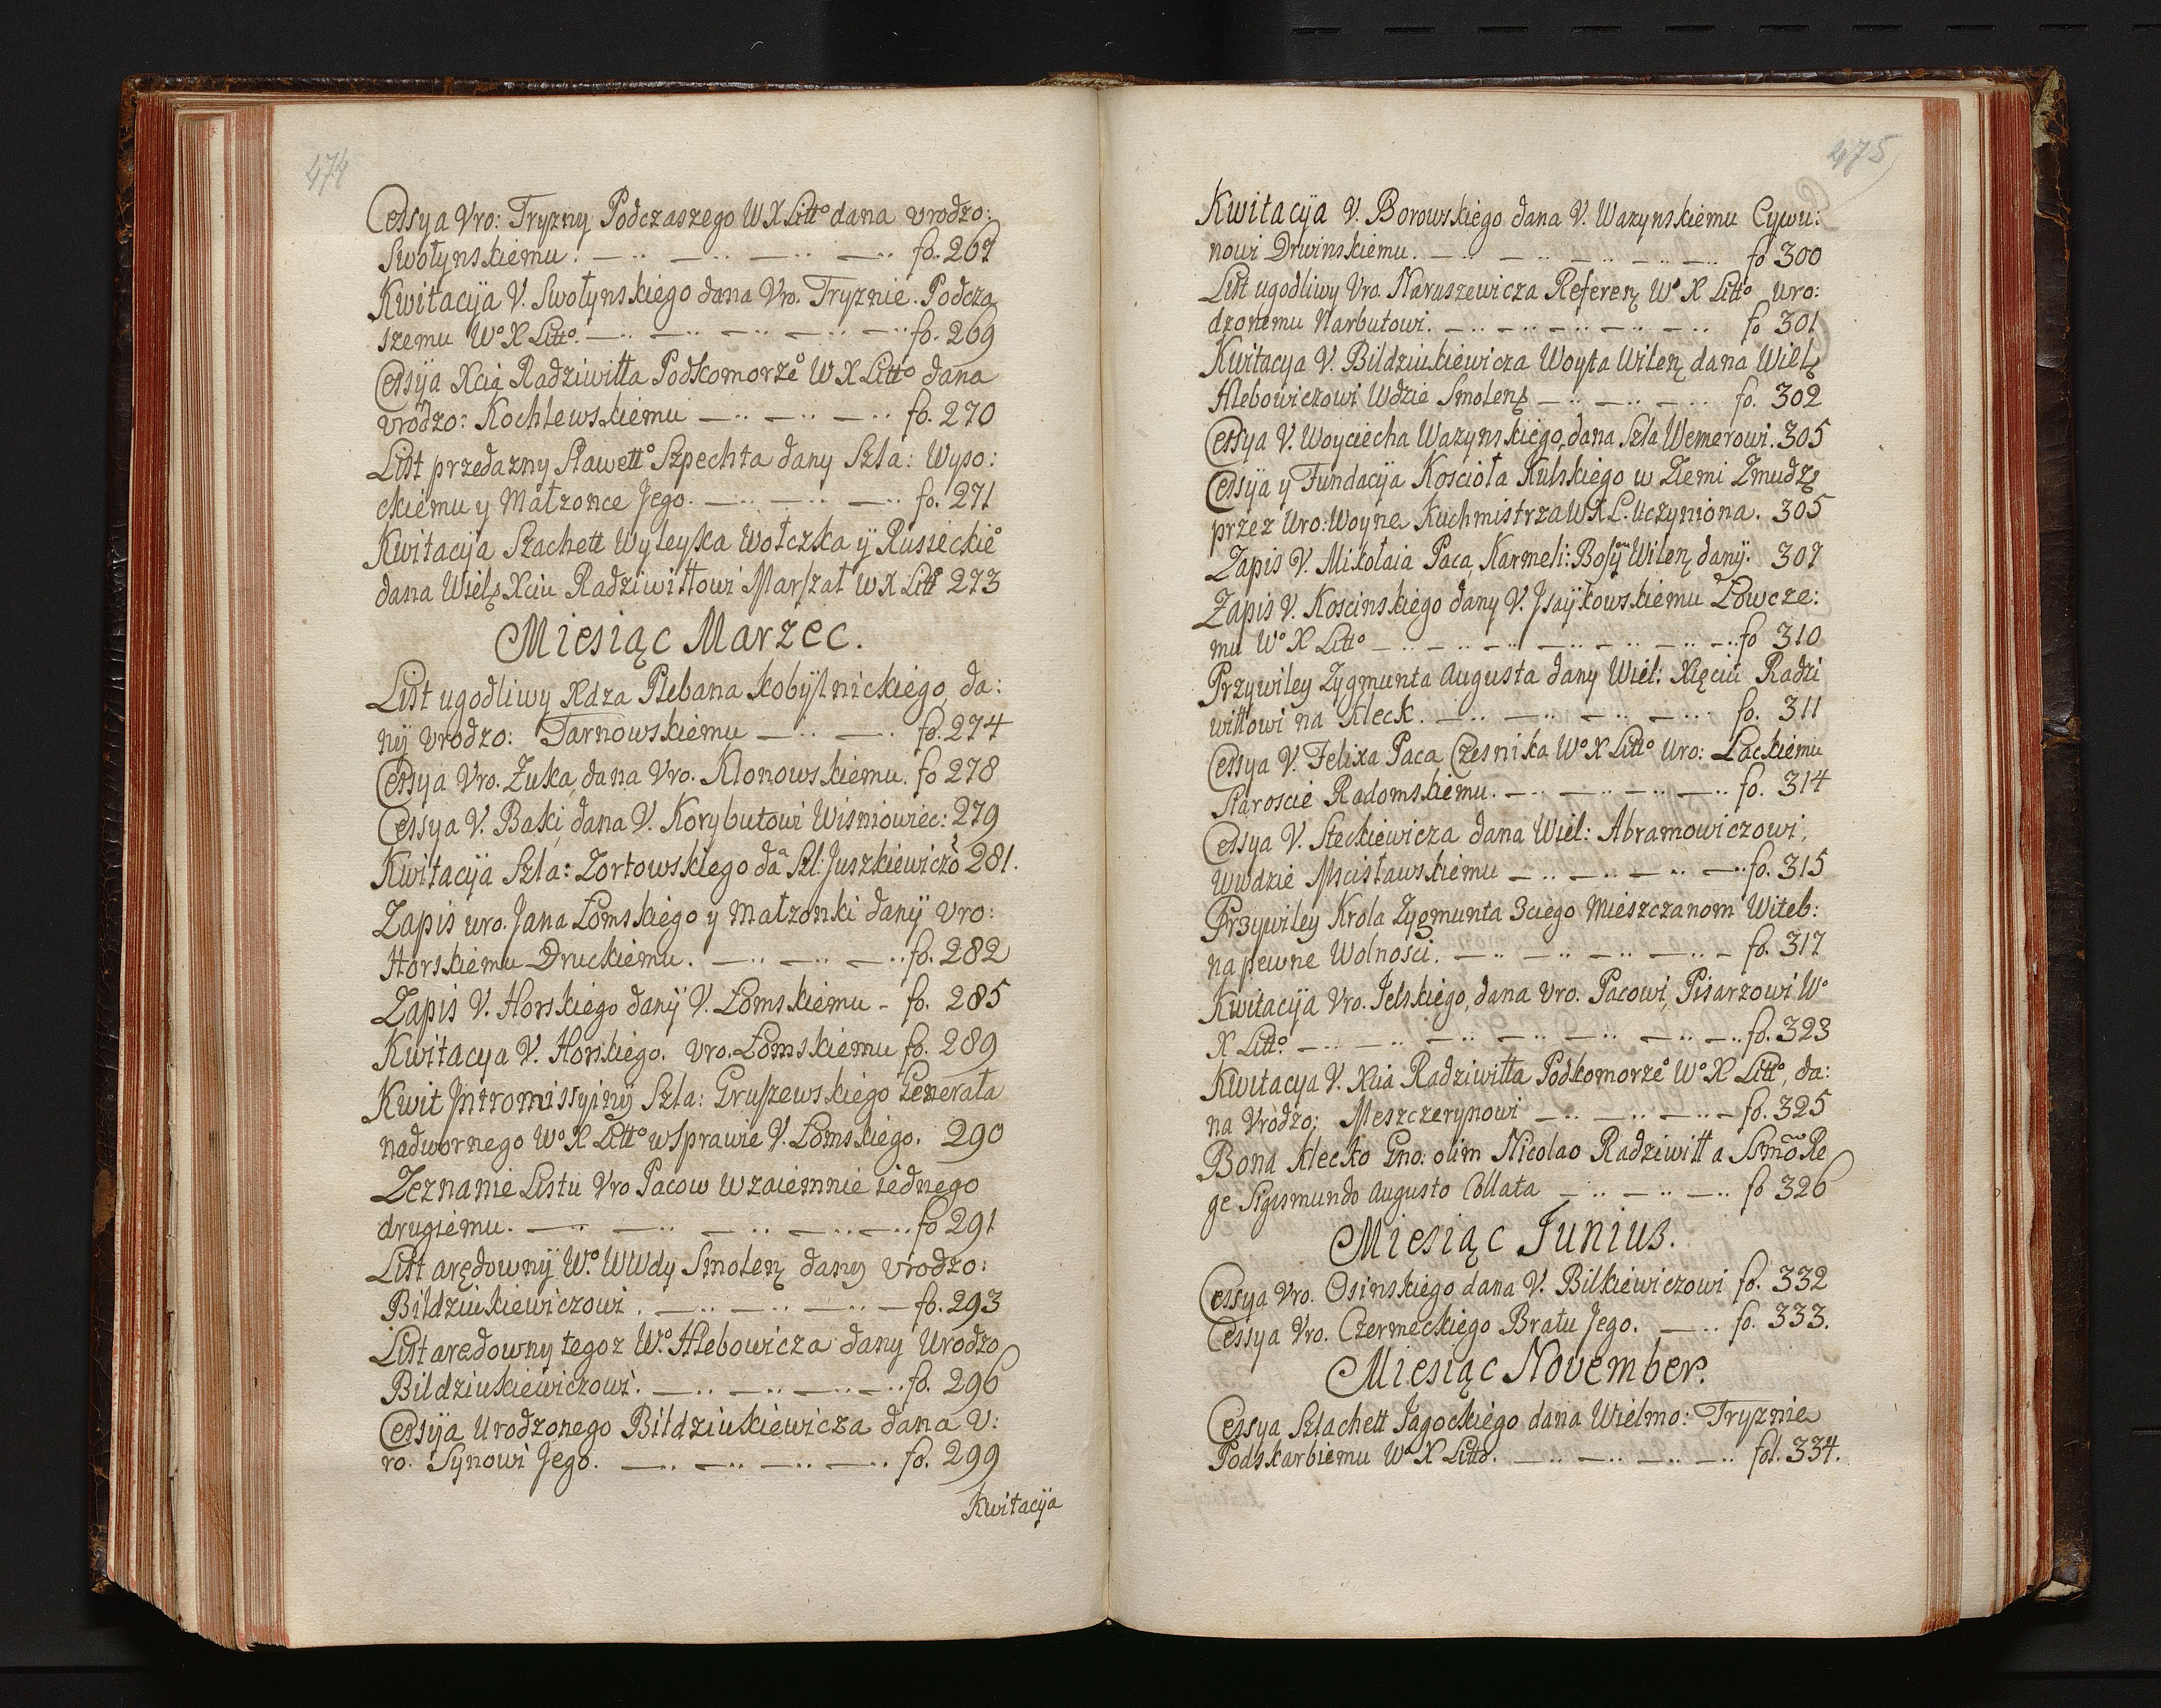 474
Cessya Vro: Tryzny Podczaszego W X Litto dana vrodzo:
Swołynskiemu. fo. 267
Kwitacyja V. Swołynskiego dana Vro. Tryznie. Podcza
szemu Wo X Litto. fo. 269
Cessyja Xcia Radziwiłła Podkomorzeo W X Litto dana
vrodzo: Kochlewskiemu fo. 270
List przedazny Sławetto Szpechta dany Szla: Wyso:
ckiemu y Małzonce Jego. fo. 271
Kwitacyja Szlachett Wyleyka Wołczka ÿ Rusieckieo
dana Wielz Xciu Radziwiłłowi Marszał W X Litto 273
Miesiąc Marzec.
List ugodliwy Xdza Plebana kobylnickiego, da:
nÿ vrodzo: Tarnowskiemu fo. 274
Cessya Vro. Zuka, dana Vro. Klonowskiemu. fo 278
Cessya V. Baki, dana V. Korybutowi Wisniowiec: 279
Kwitacyja Szla: Zortowskiego daa Szl. Juszkiewiczo 281.
Zapis uro. Jana Łomskiego y małzonki danÿ vro:
Horskiemu Druckiemu. fo. 282
Zapis V. Horskiego danÿ V. Łomskiemu - fo. 285
Kwitacya V. Horskiego. vro. Łomskiemu fo. 289
Kwit Jntromissyinÿ Szla: Gruszewskiego Generała
nadwornego Wo X Litto w sprawie V. Łomskiego. 290
Zeznanie Listu Vro Pacow wzaiemnie iednego
drugiemu. fo 291
List arędownÿ Wo. WWdy Smolen dany vrodzo:
Bildziukiewiczowi. fo. 293
List arędowny tegoz Wo. Hlebowicza dany Urodzo
Bildziukiewiczowi. fo. 296
Cessyja Urodzonego Bildziukiewicza dana V:
ro. Synowi Jego. fo. 299
Kwitacyja
475
Kwitacyja V. Borowskiego dana V. Wazynskiemu Cywu:
nowi Drwinskiemu. fo 300
List ugodliwy Vro. Naruszewicza Referen Wo X Litto Uro:
dzonemu Narbutowi. fo 301
Kwitacya V. Bildziukiewicza Woyta Wilen dana Wielz
Hlebowiczowi Wdzie Smolen fo. 302
Cessya V. Woyciecha Wazynskiego, dana Szla Wemerowi. 305
Cessyja y Fundacyja Kosciola Kulskiego w Ziemi Zmudz
przez Uro: Woyne Kuchmistrza W X L. Uczyniona. 305
Zapis V. Mikołaia Paca, Karmeli: Bosy Wilen danÿ. 307
Zapis V. Koscinskiego dany V. Jsaÿkowskiemu Łowcze:
mu Wo X Litto fo 310
Przywiley Zygmunta Augusta dany Wiel: Xięciu Radzi
wiłłowi na Kleck. fo. 311
Cessya V. Felixa Paca, Czesnika Wo X Litto Uro: Łackiemu
Staroscie Radomskiemu. fo. 314
Cessya V. Steckiewicza dana Wiel: Abramowiczowi,
Wwdzie Mscisławskiemu fo. 315
Przywiley Krola Zygmunta 3ciego Mieszczanom Witeb:
na pewne Wolnosci. fo. 317
Kwitacyja Vro. Jelskiego, dana vro. Pacowi, Pisarzowi Wo
X Litto. fo. 323
Kwitacya V. Xcia Radziwiłła Podkomorzeo Wo X Litto, da:
na Vrodzo; Meszczerynowi fo. 325
Bona Klecko Gno: olim Nicolao Radziwiłł a Ssmo Re
ge Sigismundo Augusto Collata fo 326
Miesiąc Junius.
Cessya Vro. Osinskiego dana V. Bilkiewiczowi fo. 332
Cessya Vro. Czermeckiego Bratu Jego. fo. 333.
Miesiąc November.
Cessya Szlachett Jagockiego dana Wielmo: Tryznie
Podskarbiemu Wo X Litto. fol. 334.